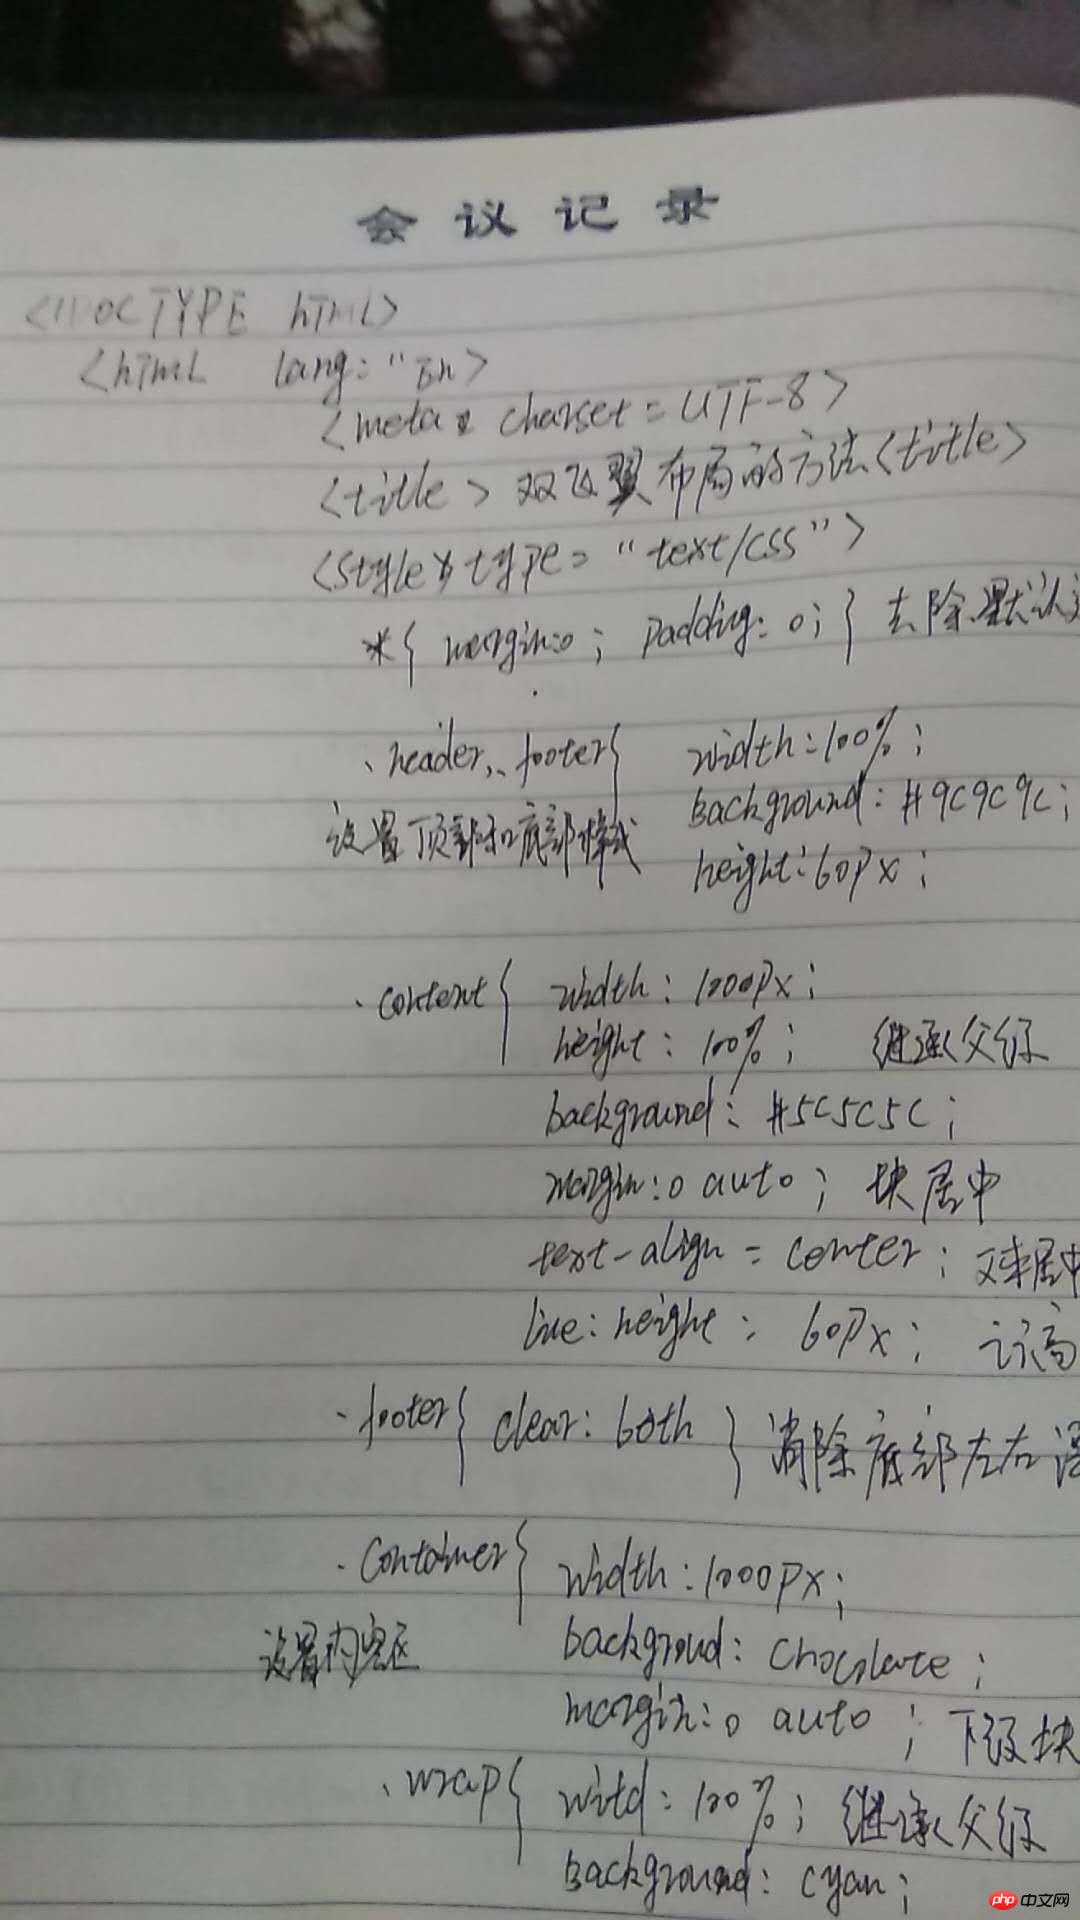 会议记录
<!DOCTYPE html>
<html lang:"En>
<meta charset=UTF-8>
<title>双飞翼布局的方法<title>
<style type="text/css">
*{ margin:0; padding:0;} 去除默认
.header,.footer{ width:100%;
background:#9C9C9C;
设置顶部和底部样式
height:60px;
.content{ width:1000px;
height:100%; 继承父级
background:#5C5C5C;
margin:0 auto; 块居中
text-align=center; 文本居中
line:height: 60px; 行高
.footer{ clear:both } 消除底部左右浮
.container{ width:1000px;
设置内容区
backgroud:chocolate;
margin:0 auto; 下级块
.wrap{ witd:100%; 继承父级
background:cyan;
php 中文网